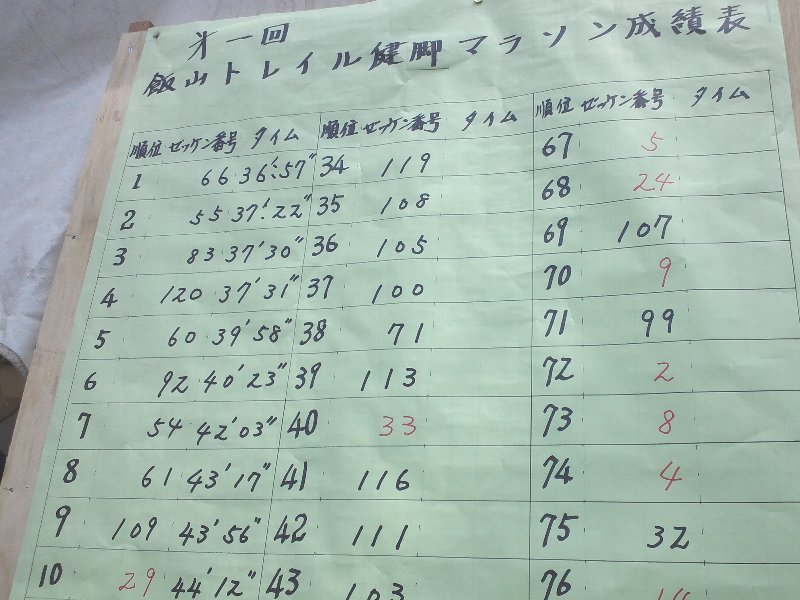 㐧一回
飯山トレイル健脚マラソン成績表
順位 ゼッケン番号 タイム 順位 ゼッケン番号 タイム 順位 ゼッケン番号 タイム
1 66 36':57" 34 119 67 5
2 55 37':22" 35 108 68 24
3 83 37'30" 36 105 69 107
4 120 37'31" 37 100 70 9
5 60 39'58" 38 71 71 99
6 92 40'23" 39 113 72 2
7 54 42'03" 40 33 73 8
8 61 43'17" 41 116 74 4
9 109 43'56" 42 111 75 32
10 29 44'12" 43 103 76